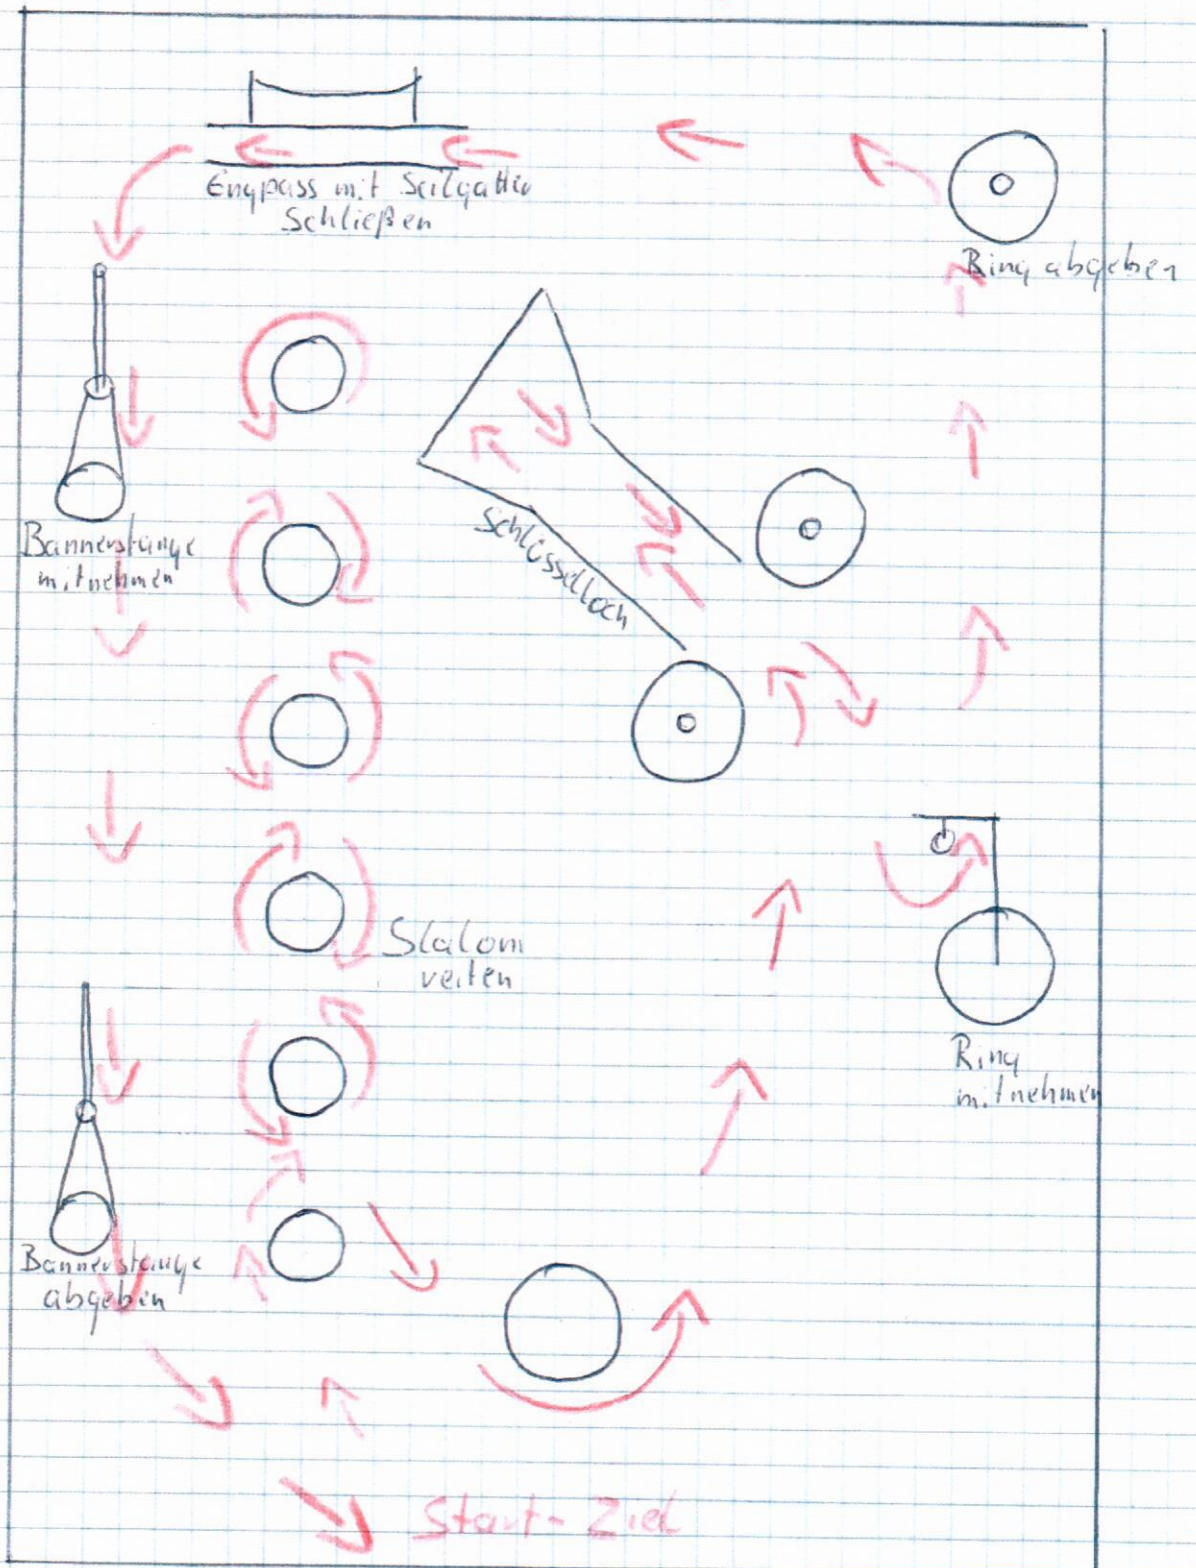 Engpass mit Seilgatter
Schließen
Ring abgeben
Bannerstange
mitnehmen
Schlüsselloch
Slalom
reiten
Ring
mitnehmen
Bannerstange
abgeben
Start-Ziel